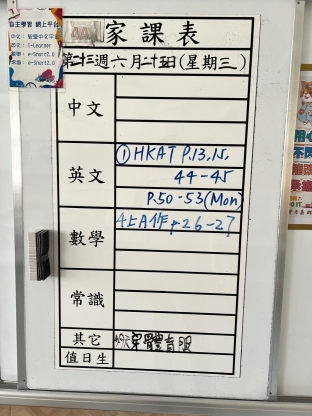 自主學習 網上平台
英文: i-Learner
數學: e-Smart2.0
常識: e-Smart2.0
家課表
第二十三週六月二十五日(星期三)
中文
英文
① HKAT P.13,15,
44-45
P.50-53(Mon)
數學
4上A作 p.26-27
常識
其它
明天穿體育服
值日生